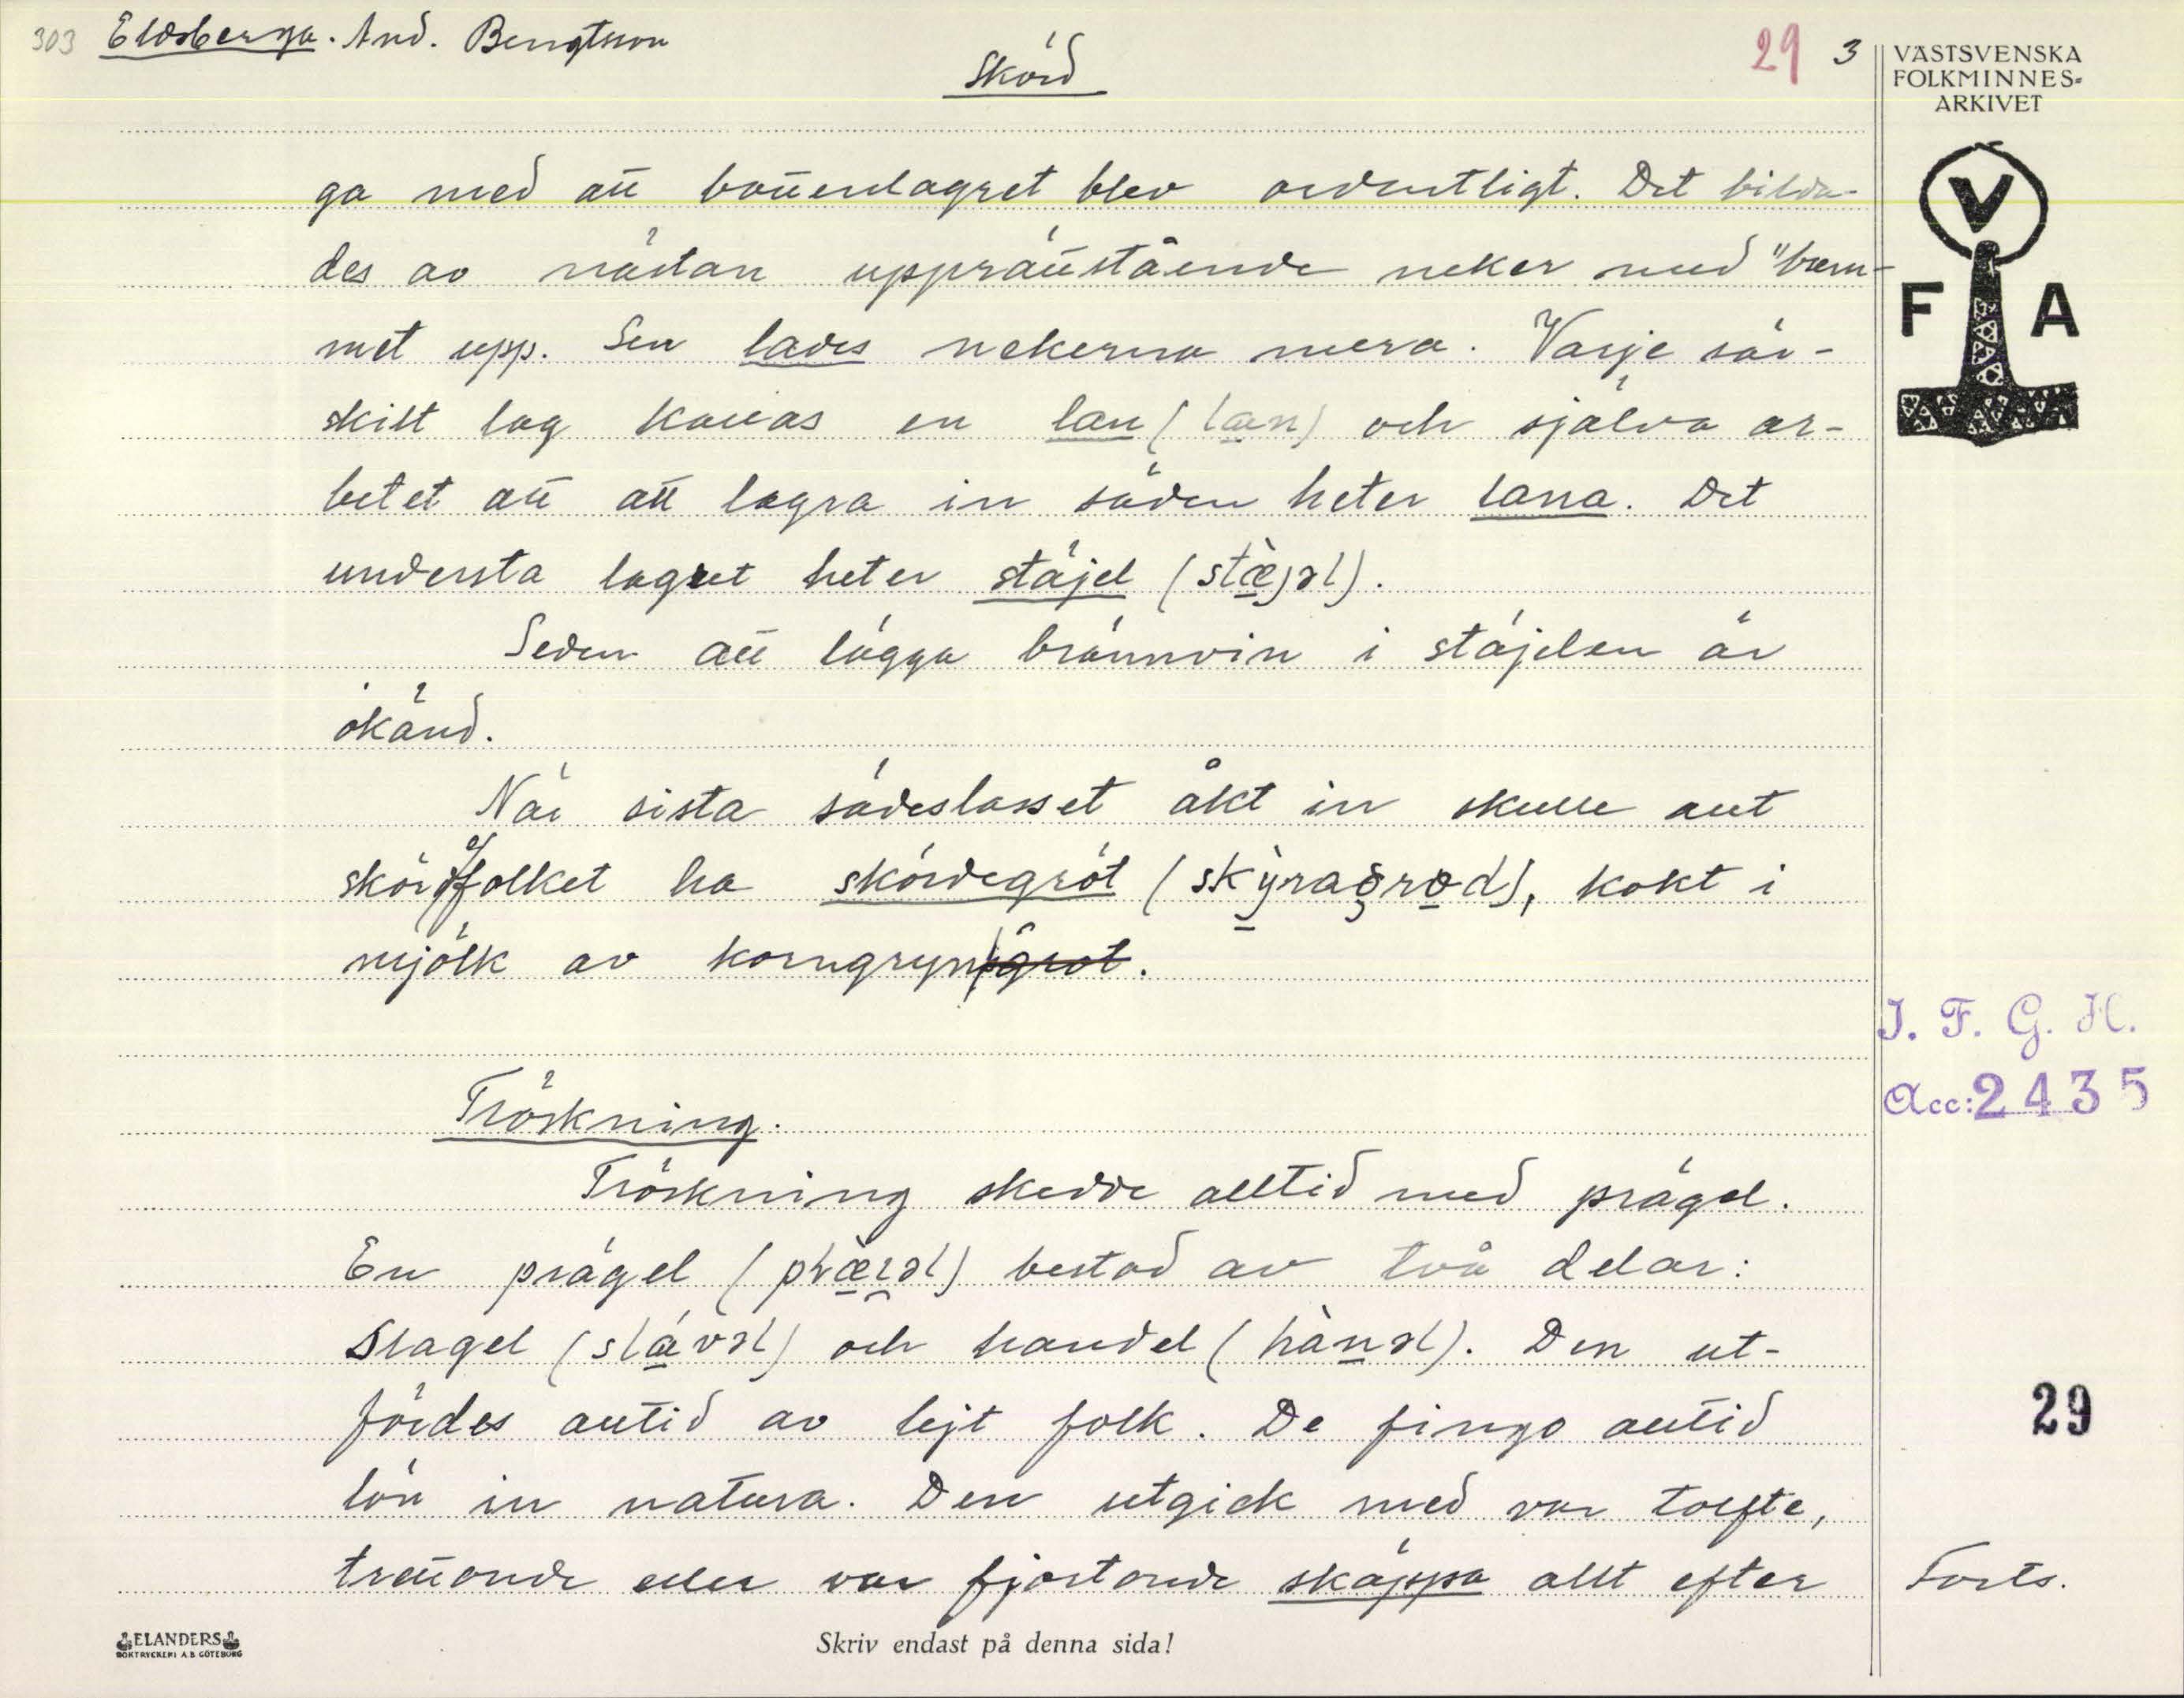 303 Eldsberga. And. Bengtsson
29 3
Skörd
VÄSTSVENSKA
FOLKMINNES-
ARKIVET
V
F A
ga med att bottenlagret blev ordentligt. Det bilda-
des av nästan upprättstående neker med "bem-
met upp. Sen lades nekerna mera. Varje sär-
skilt lag kallas en lan (lan) och själva ar-
betet att att lagra in säden heter lana. Det
understa lagret heter stäjel (stæ̀jəl).
Seden att lägga brännvin i stäjelen är
okänd.
När sista sädeslasset åkt in skulle allt
skördfolket ha skördegröt (skỳragrød), kokt i
mjölk av korngryn gröt.
Tröskning.
Tröskning skedde alltid med prägel.
En prägel (præ̀ɪəl) bestod av två delar:
Slagel (slávəl) och handel (hànəl). Den ut-
fördes alltid av lejt folk. De fingo alltid
lön in natura. Den utgick med var tolfte,
trettonde eller var fjortonde skäppa allt efter
J. F. G. H.
Acc: 2435
29
Forts.
ELANDERS
BOKTRYCKERI A.B. GÖTEBORG
Skriv endast på denna sida!